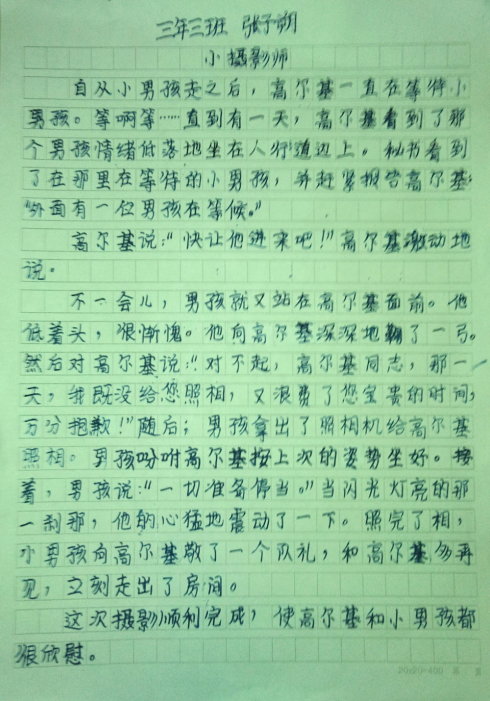 三年三班 张子朔
小摄影师
自从小男孩走之后，高尔基一直在等待小
男孩。等啊等……直到有一天，高尔基看到了那
个男孩情绪低落地坐在人行道边上。秘书看到
了在那里在等待的小男孩，并赶紧报告高尔基：
“外面有一位男孩在等候。”
高尔基说：“快让他进来吧！”高尔基激动地
说。
不一会儿，男孩就又站在高尔基面前。他
低着头，很惭愧。他向高尔基深深地鞠了一弓。
然后对高尔基说：“对不起，高尔基同志，那一
天，我既没给您照相，又浪费了您宝贵的时间，
万分抱歉！”随后；男孩拿出了照相机给高尔基
照相。男孩吩咐高尔基按上次的姿势坐好。接
着，男孩说：“一切准备停当。”当闪光灯亮的那
一刹那，他的心猛地震动了一下。照完了相，
小男孩向高尔基敬了一个队礼，和高尔基匆再
见，立刻走出了房间。
这次摄影顺利完成，使高尔基和小男孩都
很欣慰。
20×20=400 第 页